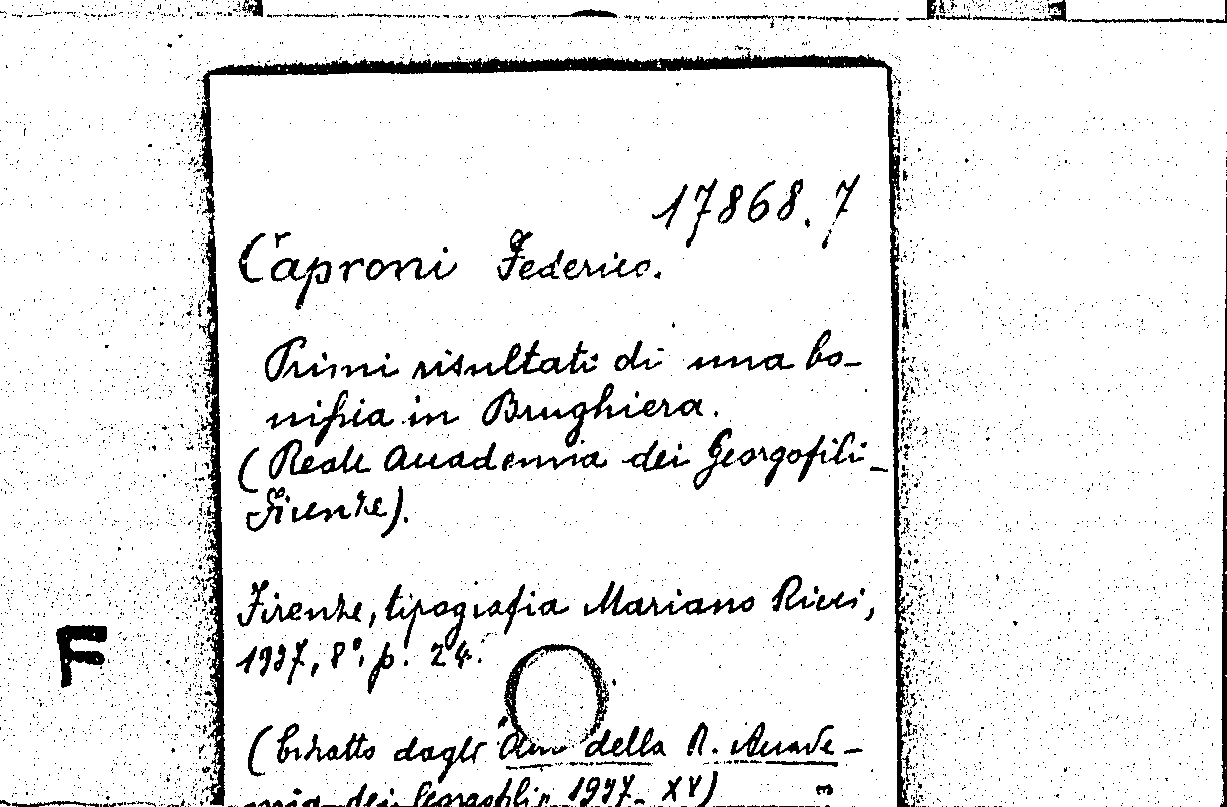 17868.7
Caproni Federico.
Primi risultati di una bo-
nifica in Brughiera.
(Reale Accademia dei Georgofili-
Firenze).
Firenze, tipografia Mariano Ricci,
1937, 8°, p. 24.
F
(Estratto dagli "Atti della R. Accade-
mia dei Georgofili" 1937- XV)
3